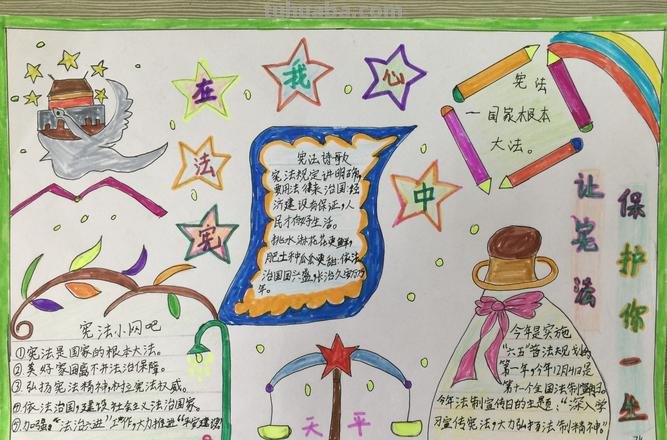 tuhuaba.com
宪法在我心中
让宪法
保护你一生
宪法
一国家根本
大法。
宪法诗歌
宪法规定讲明确,
要用法律来治国;经
济建设有保证,人
民才做好生活。
桃水淋花花更鲜,
肥土种瓜瓜更甜;依法
治国国兴盛,长治久安万
年。
宪法小网吧
①宪法是国家的根本大法。
②美好家园离不开法治保障。
③弘扬宪法精神,树立宪法权威。
④依法治国,建设社会主义法治国家。
⑤加强"法治六进"工作,大力推进"平安建设"
天平
今年是实施
"六五"普法规划的
第一年,今年12月4日是
第十一个全国法制宣传日。
今年法制宣传日的主题:"深入学
习宣传宪法,大力弘扬法制精神"